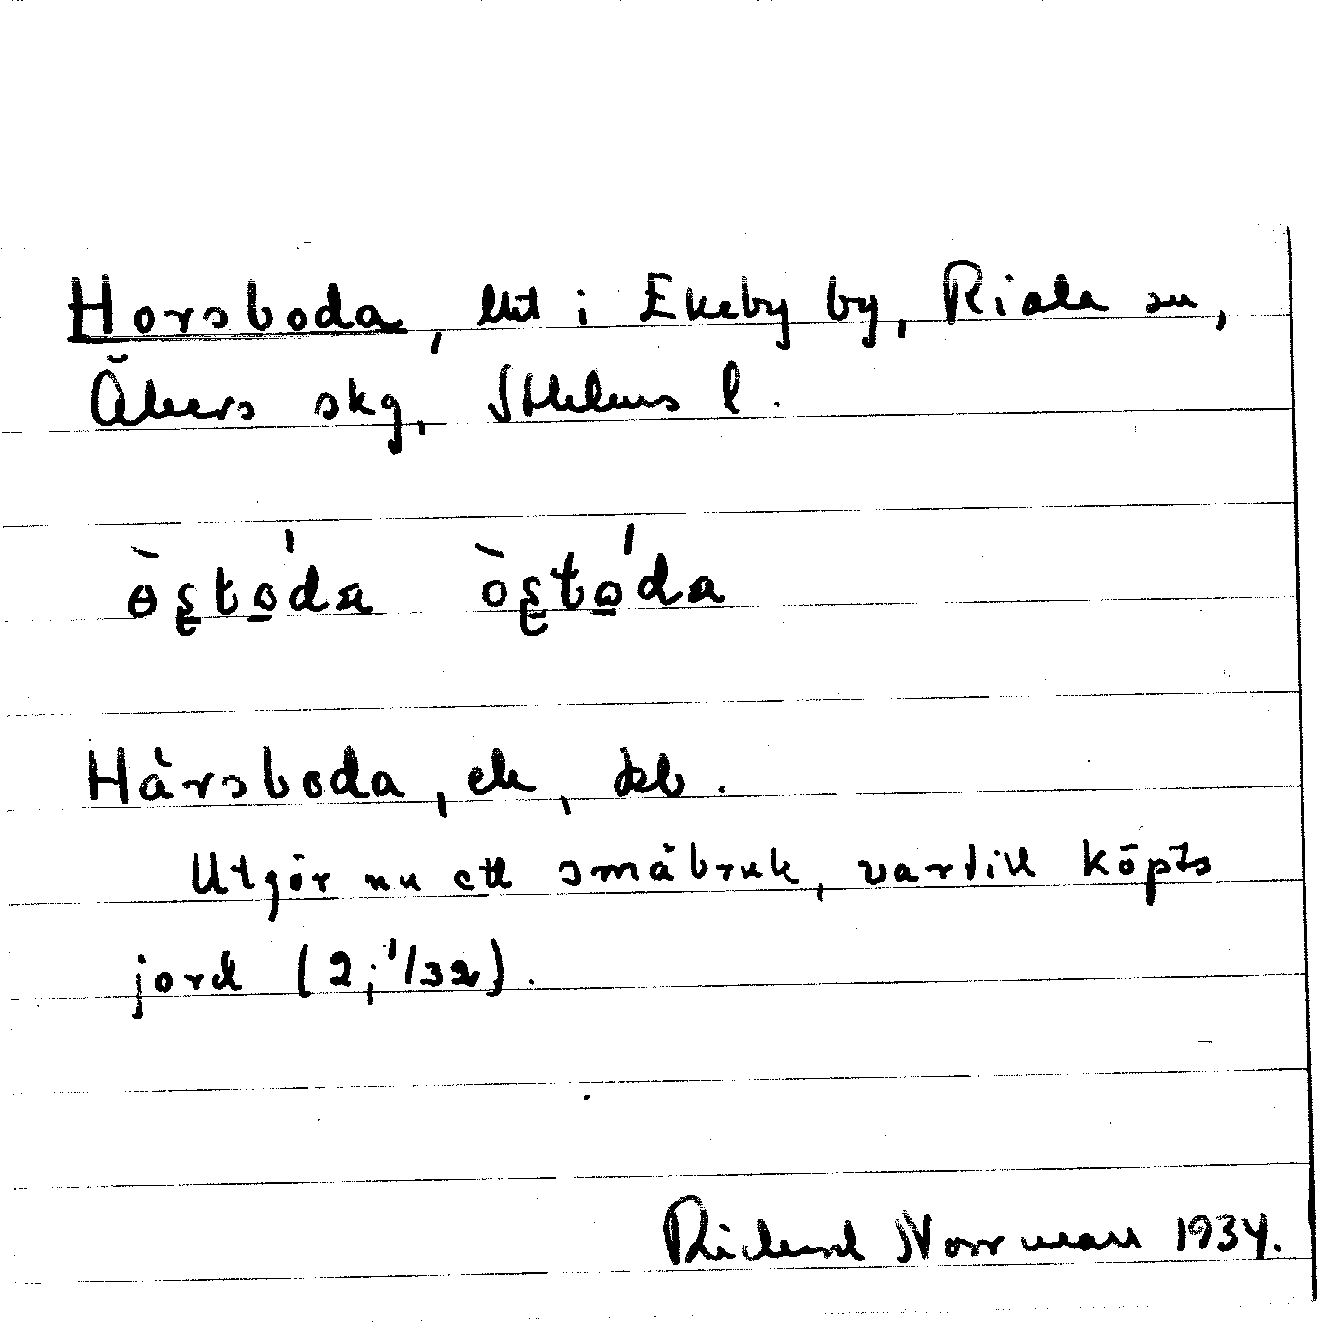 Horsboda, lht i Ekeby by, Riala sn,
Åkers skg, Sthlms l.
Hårsboda, ek, jb.
Utgör nu ett småbruk, vartill köpts
jord (2; 1/32).
Rickard Norrman 1934.